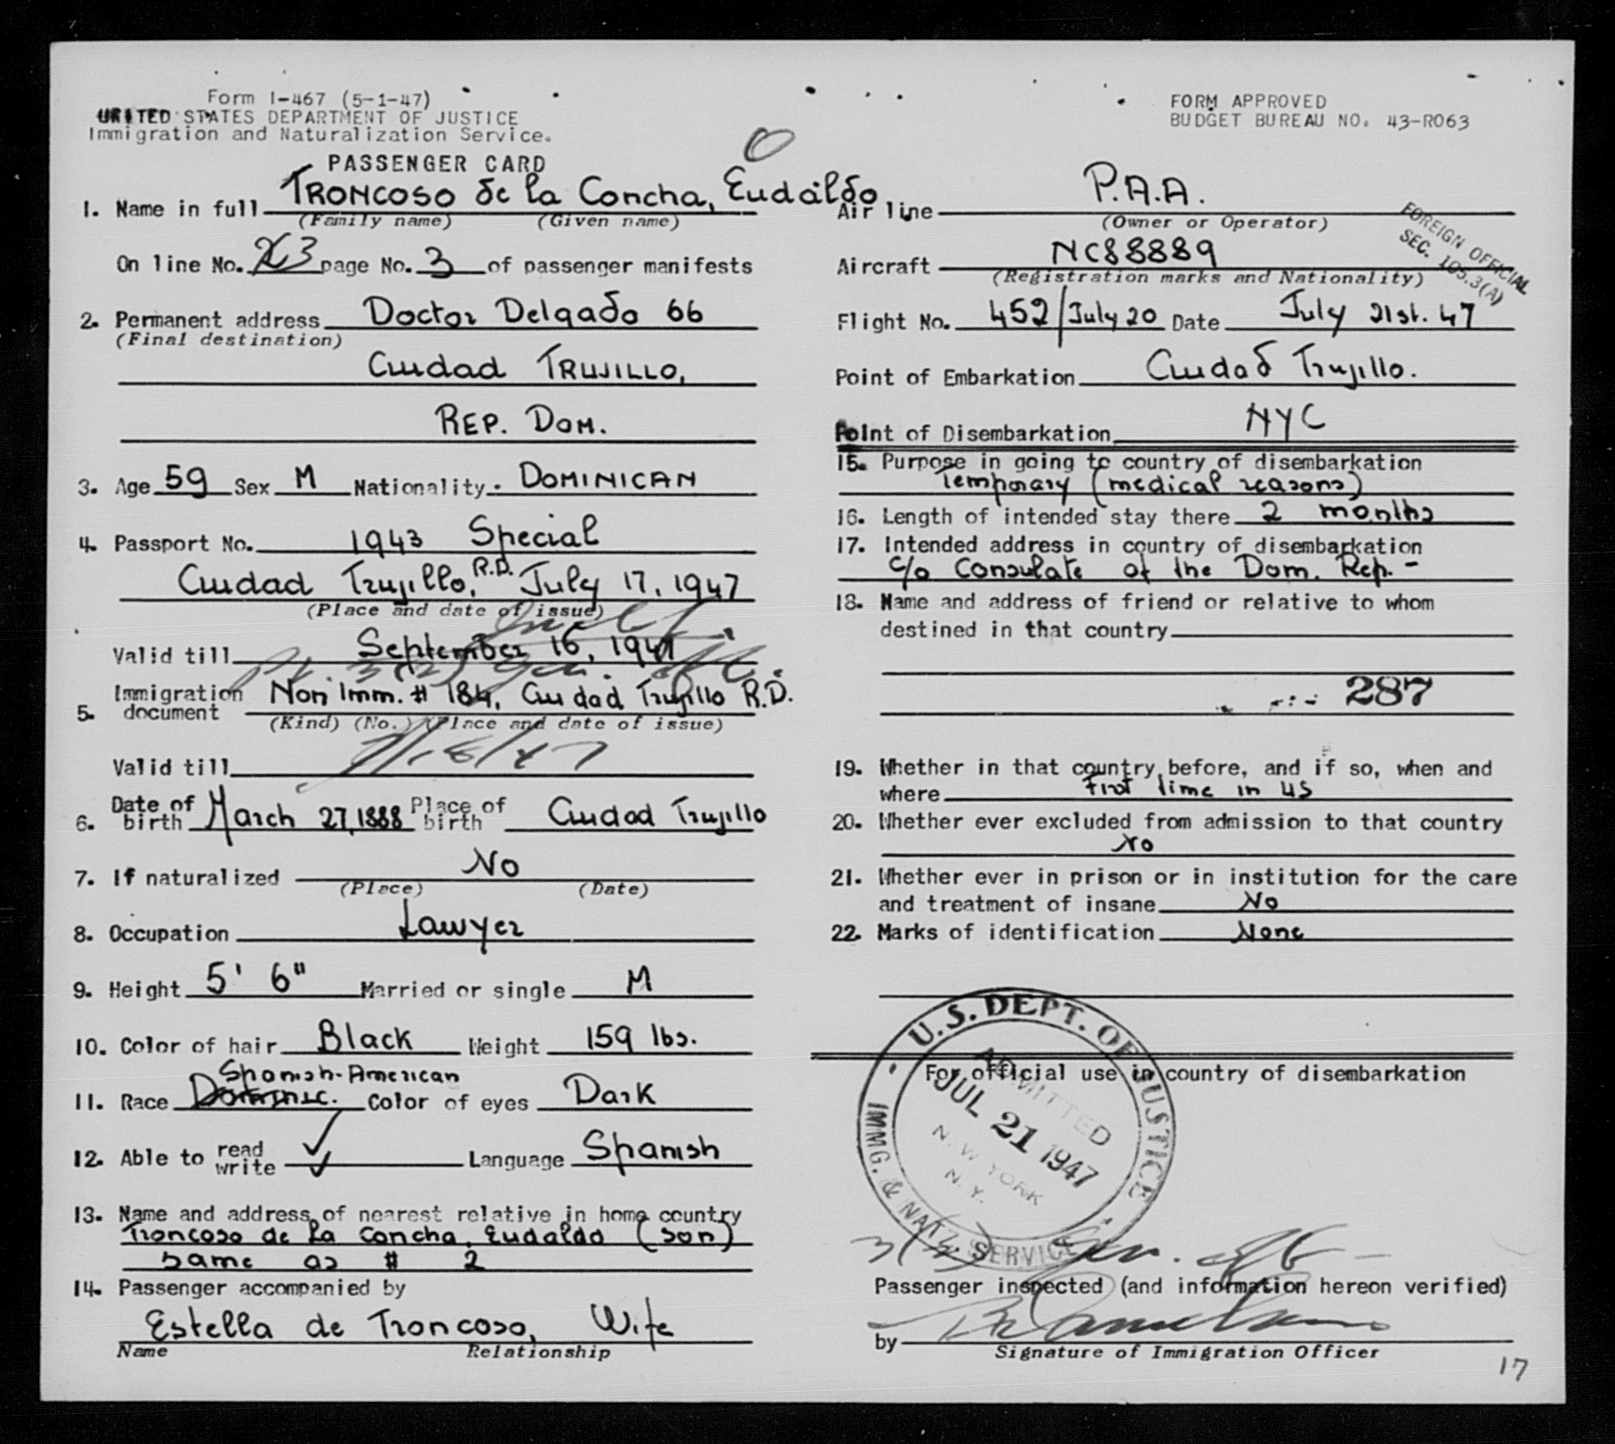 Form I-467 (5-1-47)
UNITED STATES DEPARTMENT OF JUSTICE
Immigration and Naturalization Service.
PASSENGER CARD
FORM APPROVED
BUDGET BUREAU NO. 43-R063
1. Name in full TRONCOSO de la Concha, Eudaldo
(Family name) (Given name)
On line No. 3 page No. 3 of passenger manifests
2. Permanent address Doctor Delgado 66
(Final destination)
Ciudad TRUJILLO,
REP. DOM.
3. Age 59 Sex M Nationality. DOMINICAN
4. Passport No. 1943 Special
Ciudad Trujillo, R.D. July 17, 1947
(Place and date of issue)
Valid till September 16, 1947
5. Immigration document Non Imm. # 184, Ciudad Trujillo R.D.
(Kind) (No.) (Place and date of issue)
7/18/47
Valid till
6. Date of birth March 27, 1888 Place of birth Ciudad Trujillo
7. If naturalized No
(Place) (Date)
8. Occupation Lawyer
9. Height 5' 6" Married or single M
10. Color of hair Black Weight 159 lbs.
Spanish-American
11. Race Dominic. Color of eyes Dark
12. Able to read write ✓ ✓ Language Spanish
13. Name and address of nearest relative in home country
Troncoso de la Concha, Eudaldo (son)
same as # 2
14. Passenger accompanied by
Estella de Troncoso, Wife
Name Relationship
Air line P.A.A.
(Owner or Operator)
FOREIGN OFFICIAL
SEC. 105.3(A)
Aircraft NC88889
(Registration marks and Nationality)
Flight No. 452/July 20 Date July 21st. 47
Point of Embarkation Ciudad Trujillo.
Point of Disembarkation NYC
15. Purpose in going to country of disembarkation
Temporary (medical reasons)
16. Length of intended stay there 2 months
17. Intended address in country of disembarkation
c/o Consulate of the Dom. Rep. -
18. Name and address of friend or relative to whom
destined in that country
287
19. Whether in that country before, and if so, when and
where First time in US
20. Whether ever excluded from admission to that country
No
21. Whether ever in prison or in institution for the care
and treatment of insane No
22. Marks of identification None
For official use in country of disembarkation
U.S. DEPT. OF JUSTICE
ADMITTED
JUL 21 1947
NEW YORK
N.Y.
IMMG. & NATZ. SERVICE
Passenger inspected (and information hereon verified)
by
Signature of Immigration Officer
17